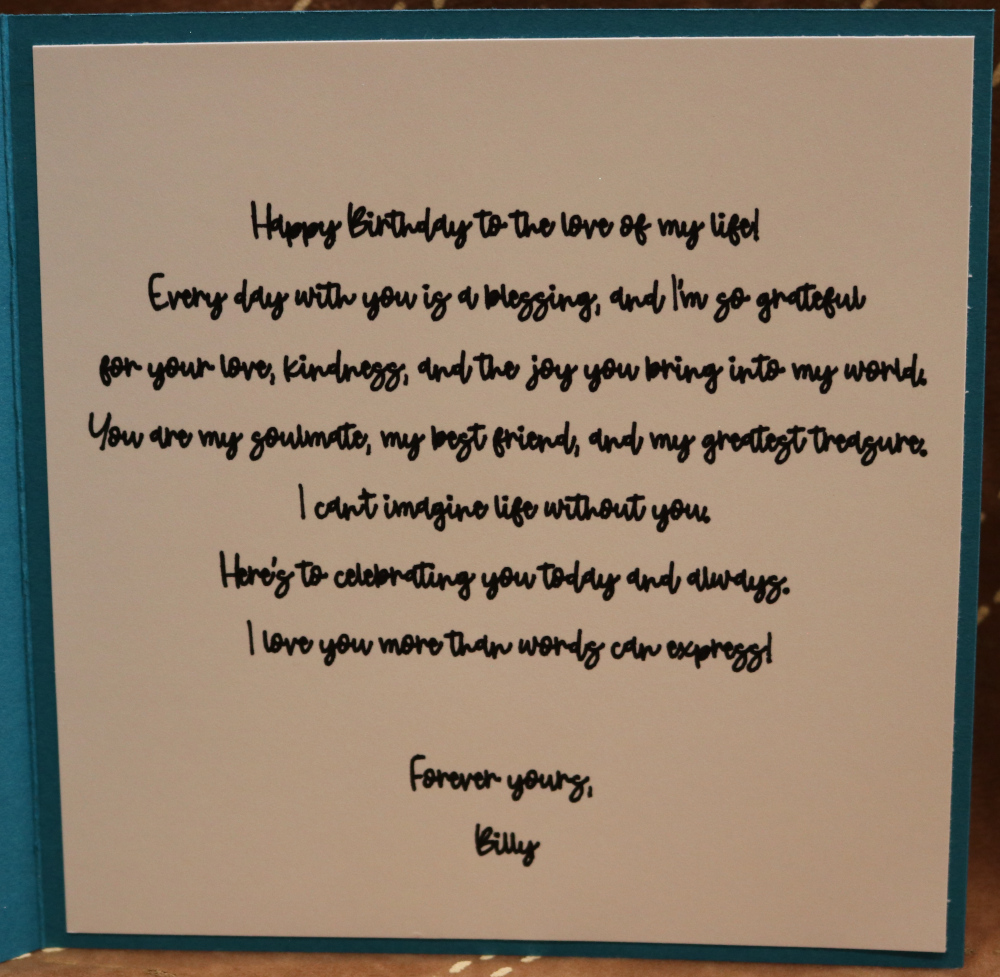 Happy Birthday to the love of my life!
Every day with you is a blessing, and I'm so grateful
for your love, kindness, and the joy you bring into my world.
You are my soulmate, my best friend, and my greatest treasure.
I can't imagine life without you.
Here's to celebrating you today and always.
I love you more than words can express!
Forever yours,
Billy